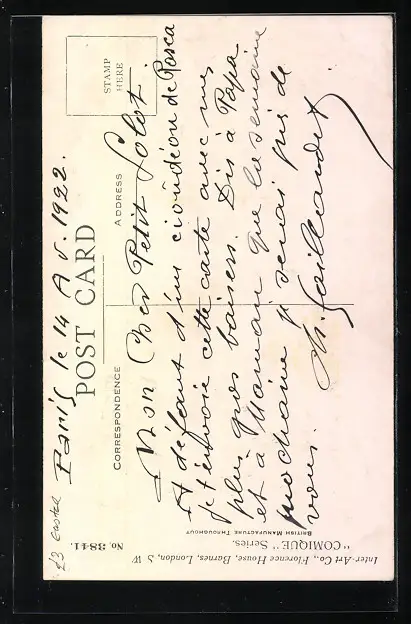 £3 easter
Paris le 14 Av. 1922.
POST CARD
CORRESPONDENCE
ADDRESS
STAMP
HERE
Mon Cher Petit Lolot.
A défaut d'un cioudéou de Pasca
je t'envoie cette carte avec mes
plus gros baisers. Dis à Papa
et à Maman que la semaine
prochaine je serai près de
vous.
Inter-Art Co., Florence House, Barnes, London, S W
"COMIQUE" Series.
British Manufacture Throughout
No. 3841.